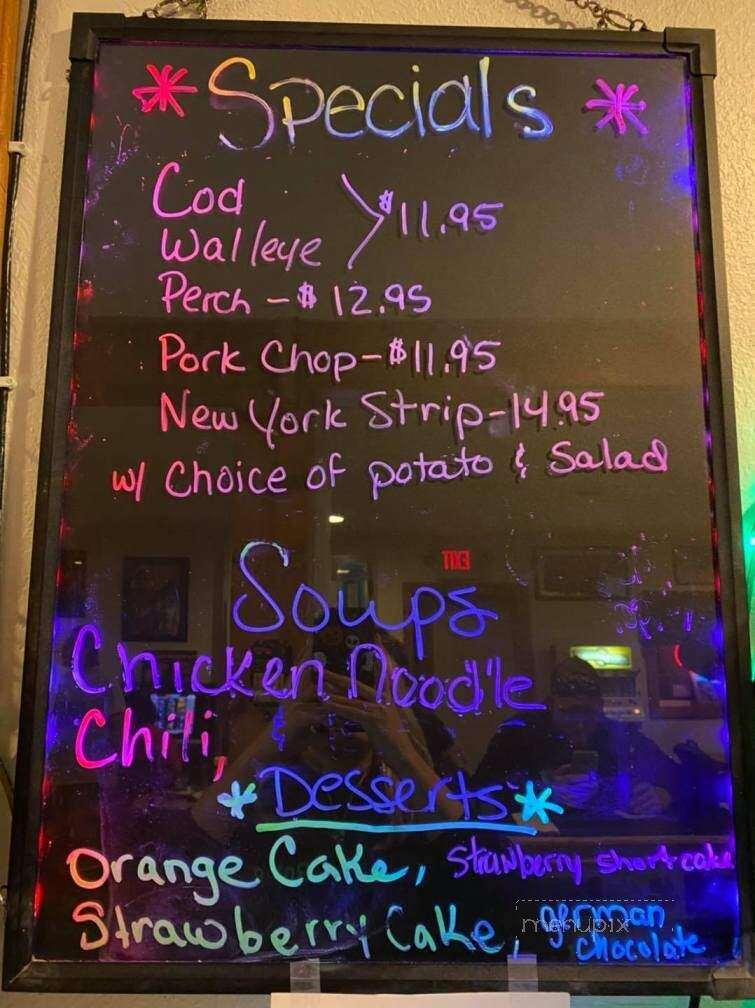 * Specials *
Cod
Walleye > $11.95
Perch - $12.95
Pork Chop - $11.95
New York Strip - 14.95
w/ Choice of potato & Salad
EXIT
Soups
Chicken Noodle
Chili, &
* Desserts *
Orange Cake, Strawberry shortcake
Strawberry Cake, german
chocolate
menupix